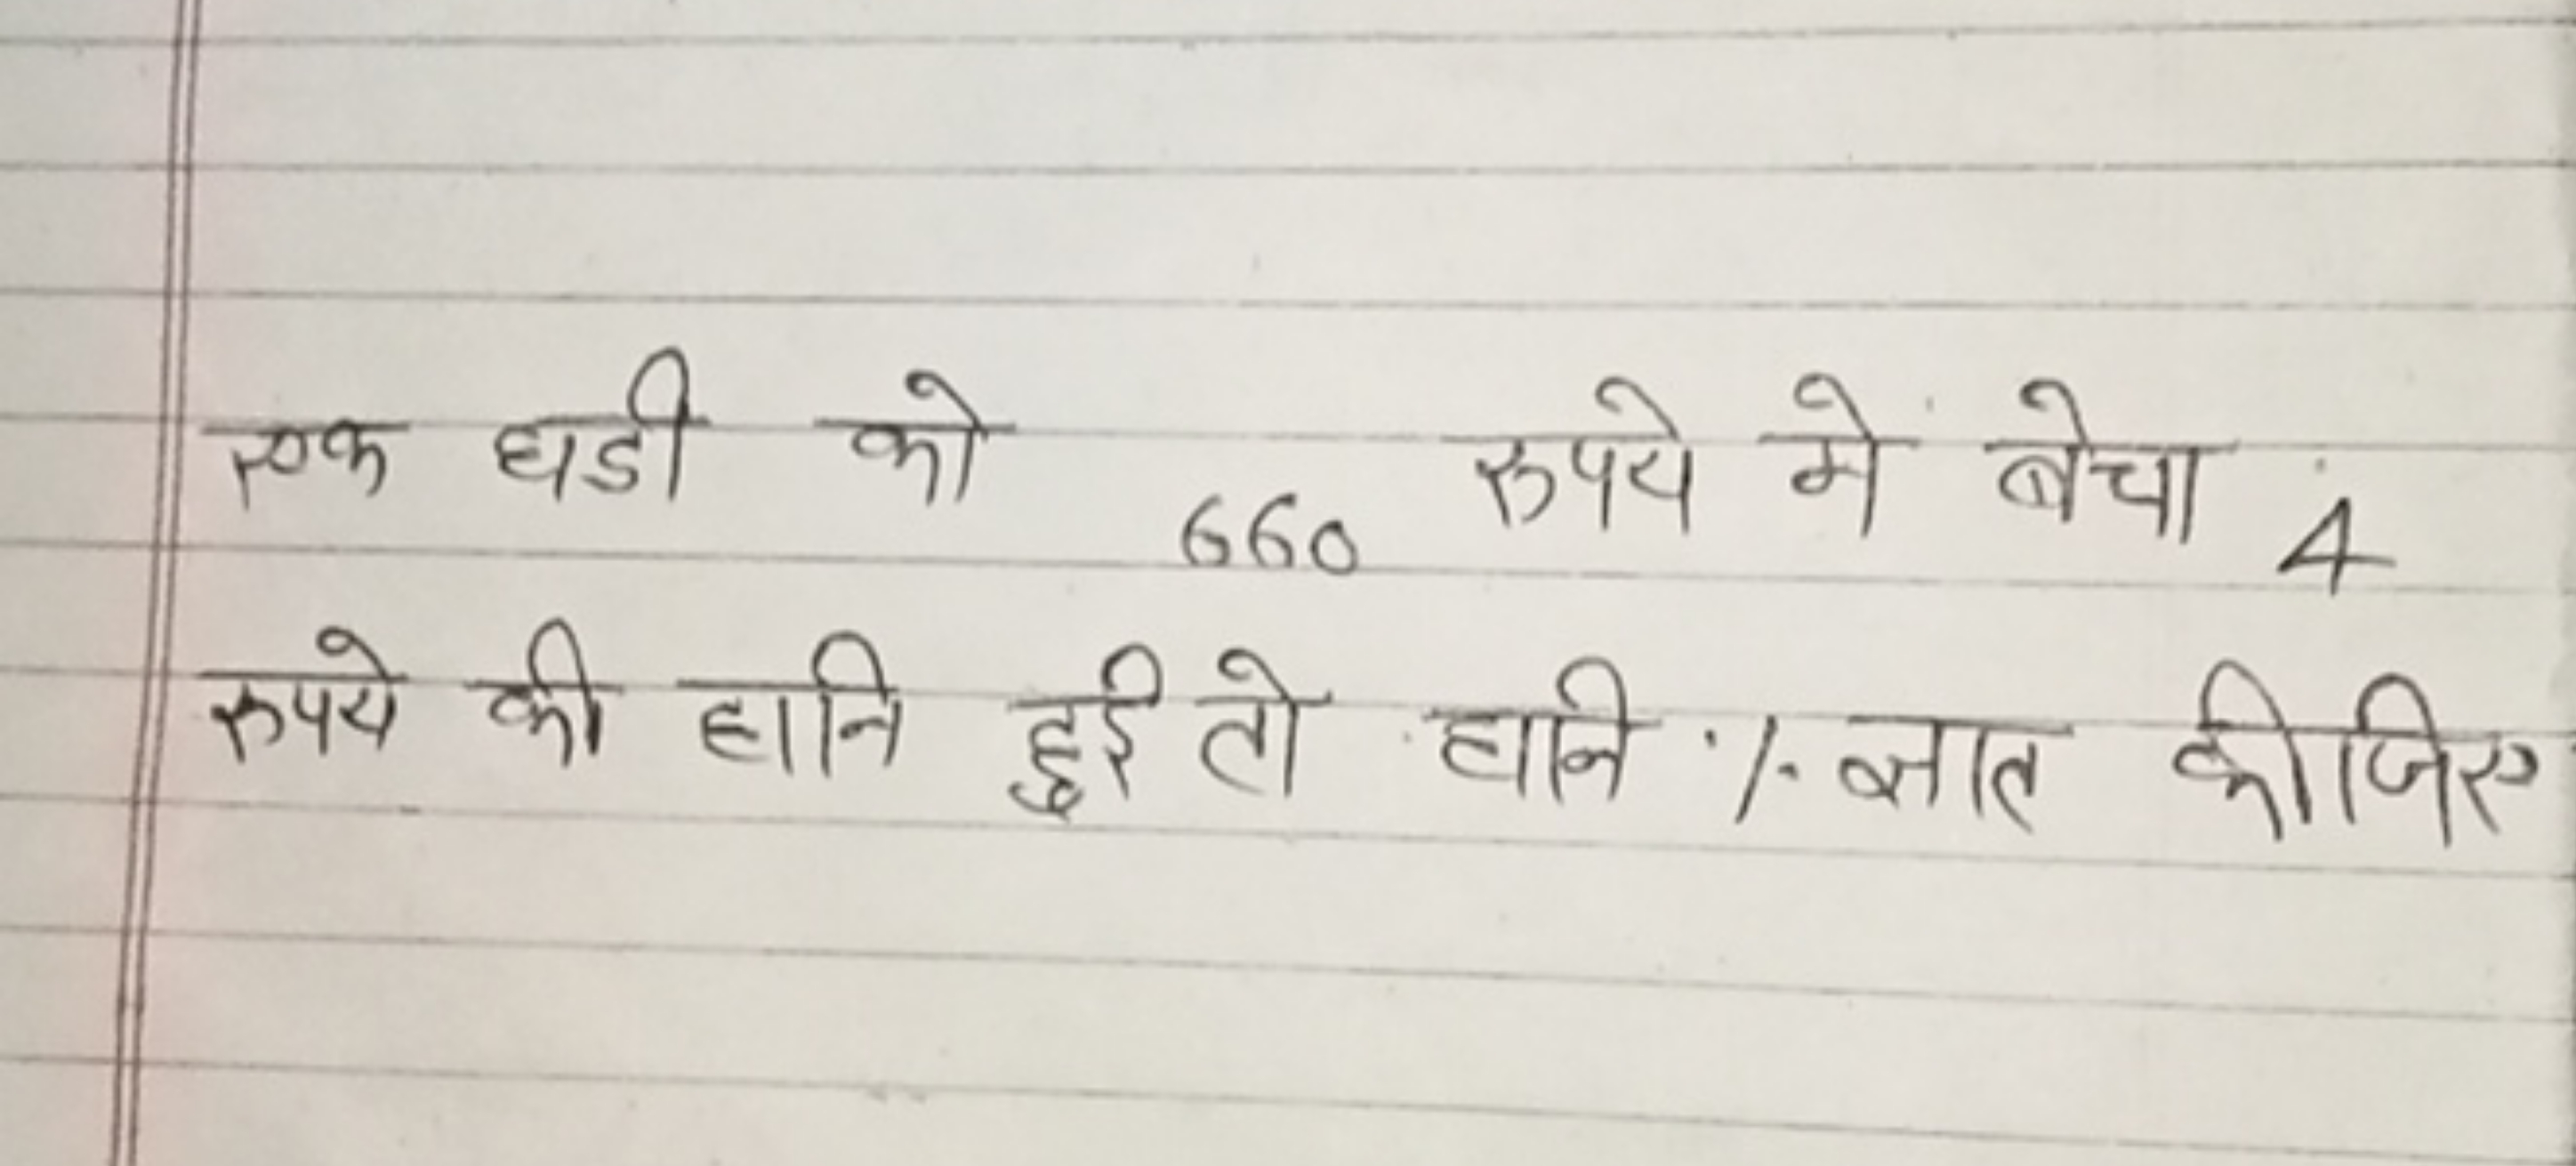 एक घडी को 660 रुपये में बेचा 4
रुपये की हानि हुई तो हानि % ज्ञात कीजिए